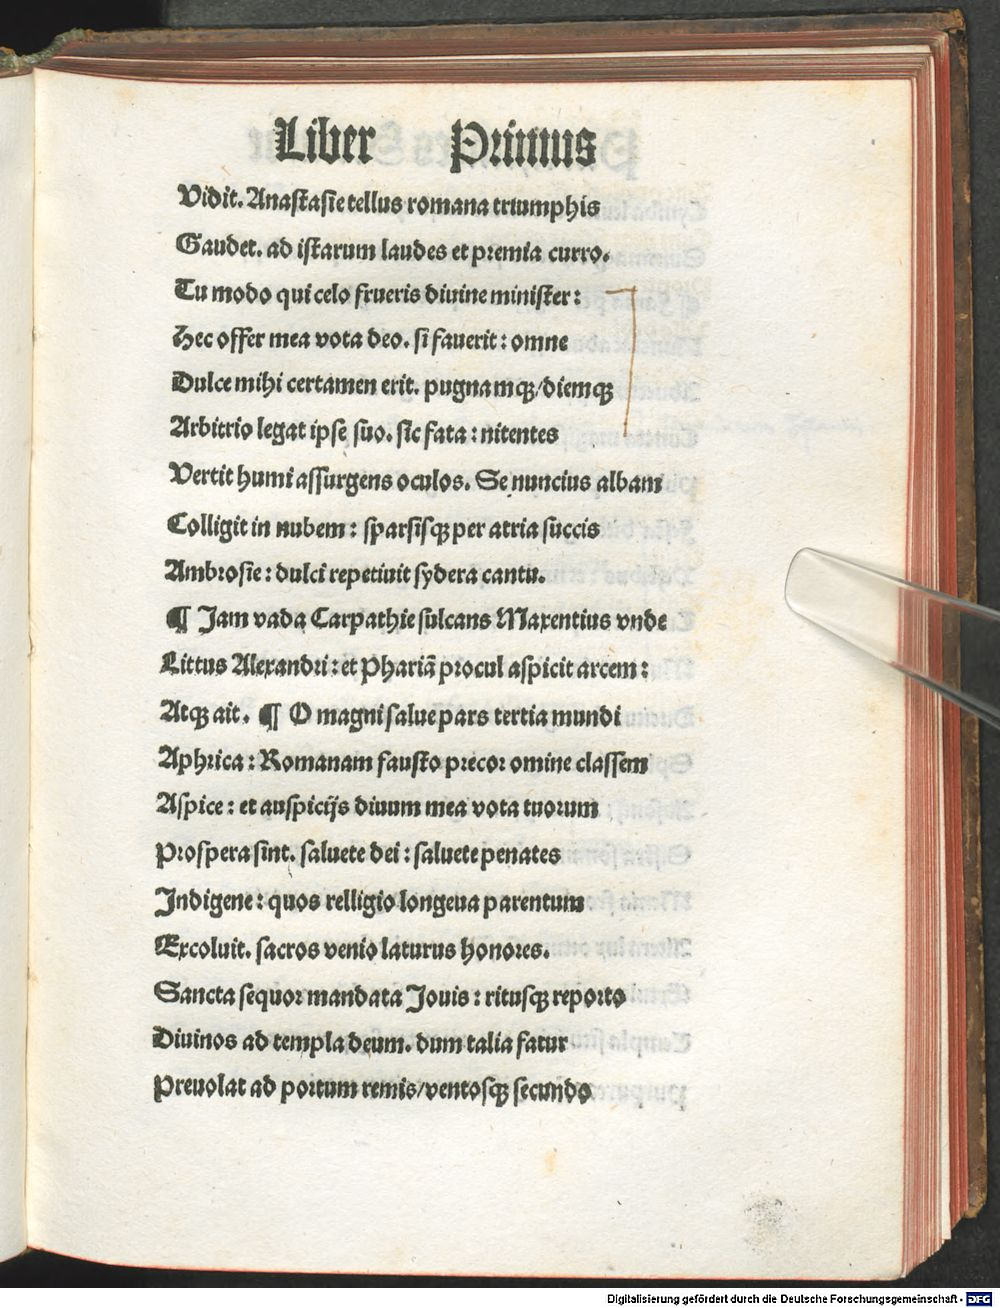 Liber Primus
Vidit. Anastasie tellus romana triumphis
Gaudet. ad istarum laudes et premia curro.
Tu modo qui celo frueris diuine minister:
Hec offer mea vota deo. si fauerit: omne
Dulce mihi certamen erit. pugnamqꝫ/diemqꝫ
Arbitrio legat ipse suo. sic fata: nitentes
Vertit humi assurgens oculos. Se nuncius albam
Colligit in nubem: sparsisqꝫ per atria succis
Ambrosie: dulci repetiuit sydera cantu.
¶ Jam vada Carpathie sulcans Maxentius vnde
Littus Alexandri: et Phariā procul aspicit arcem:
Atqꝫ ait. ¶ O magni salue pars tertia mundi
Aphrica: Romanam fausto precor omine classem
Aspice: et auspicijs diuum mea vota tuorum
Prospera sint. saluete dei: saluete penates
Indigene: quos relligio longeua parentum
Excoluit. sacros venio laturus honores.
Sancta sequor mandata Jouis: ritusqꝫ reporto
Diuinos ad templa deum. dum talia fatur
Preuolat ad portum remis/ventosqꝫ secundo
Digitalisierung gefördert durch die Deutsche Forschungsgemeinschaft - DFG